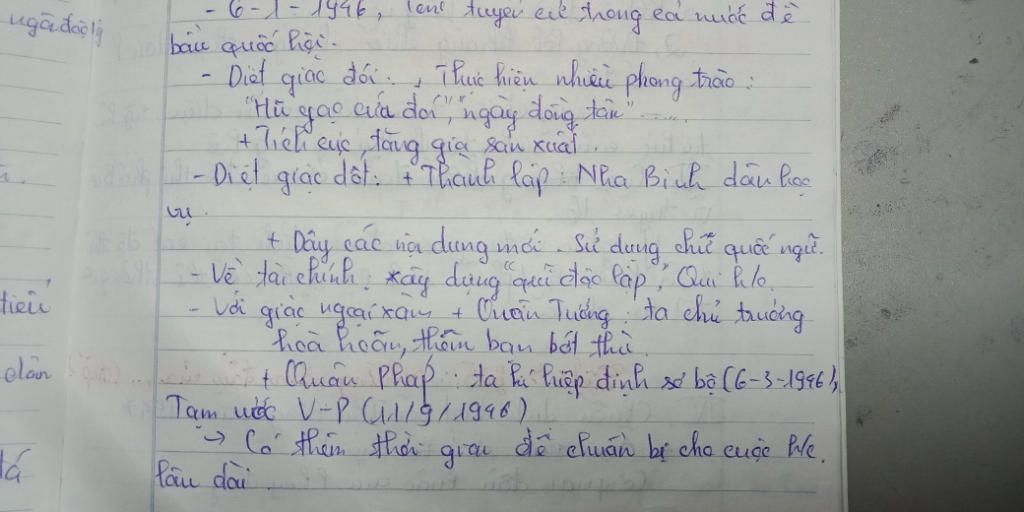 ngữ đội lý
- 6-1-1946, Tổng tuyển cử trong cả nước để
bầu quốc hội.
- Diệt giặc đói: , Thực hiện nhiều phong trào:
"Hũ gạo cứu đói", "ngày đồng tâm" ......
+ Tích cực, tăng gia sản xuất
- Diệt giặc dốt: + Thành lập: Nha Bình dân học
vụ.
+ Dạy các nội dung mới. Sử dụng chữ quốc ngữ.
- Về tài chính: xây dựng "quĩ độc lập", Quĩ k/c.
tiểu
- Với giặc ngoại xâm + Quân Tưởng: ta chủ trương
hoà hoãn, thêm bạn bớt thù.
dân
+ Quân Pháp: ta kí hiệp định sơ bộ (6-3-1946),
Tạm ước V-P (11/9/1946)
→ Có thêm thời gian để chuẩn bị cho cuộc k/c.
tá
lâu dài.